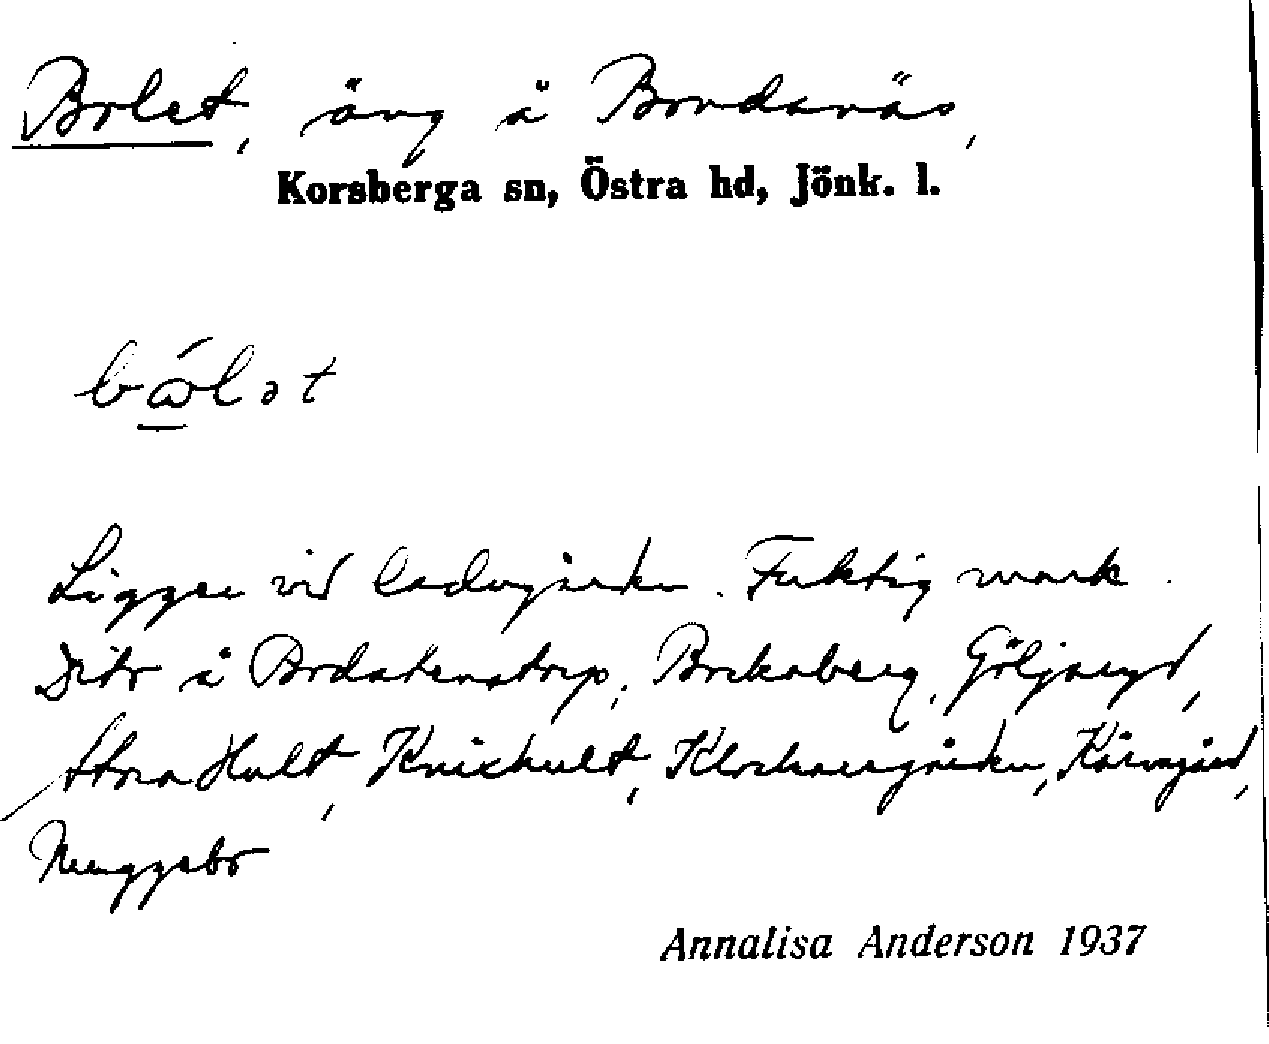 Bolet, äng å Bordsnäs,
Korsberga sn, Östra hd, Jönk. l.
Ligger vid ladugården. Fuktig mark.
Dito å Brdatenstorp, Bockaberg, Göljaryd,
Stora Hult, Knickhult, Klockaregården, Kårvagård,
Muggebo
Annalisa Anderson 1937